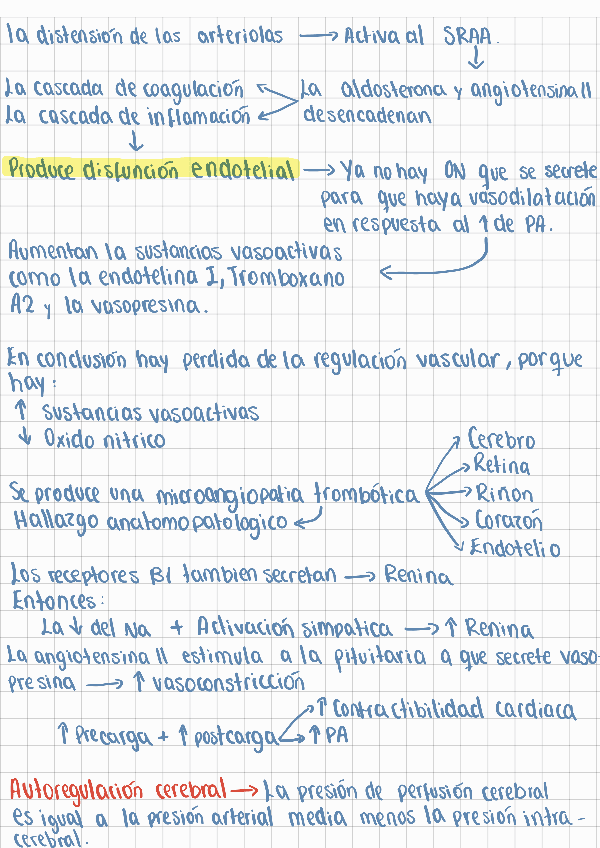 la distensión de las arteriolas → Activa al SRAA.
La cascada de coagulación
La cascada de inflamación
La aldosterona y angiotensina II
desencadenan
Produce disfunción endotelial → Ya no hay ON que se secrete
para que haya vasodilatación
en respuesta al ↑ de PA.
Aumentan la sustancias vasoactivas
como la endotelina I, Tromboxano
A2 y la vasopresina.
En conclusión hay perdida de la regulación vascular, porque
hay:
↑ sustancias vasoactivas
↓ Oxido nitrico
Cerebro
Retina
Se produce una microangiopatia trombótica
Riñon
Hallazgo anatomopatologico
Corazón
Endotelio
Los receptores B1 tambien secretan → Renina
Entonces:
La ↓ del Na + Activación simpatica → ↑ Renina
La angiotensina II estimula a la pituitaria a que secrete vaso-
presina → ↑ vasoconstricción
↑ Contractibilidad cardiaca
↑ Precarga + ↑ postcarga → ↑ PA
Autoregulación cerebral → La presión de perfusión cerebral
es igual a la presión arterial media menos la presión intra-
cerebral.